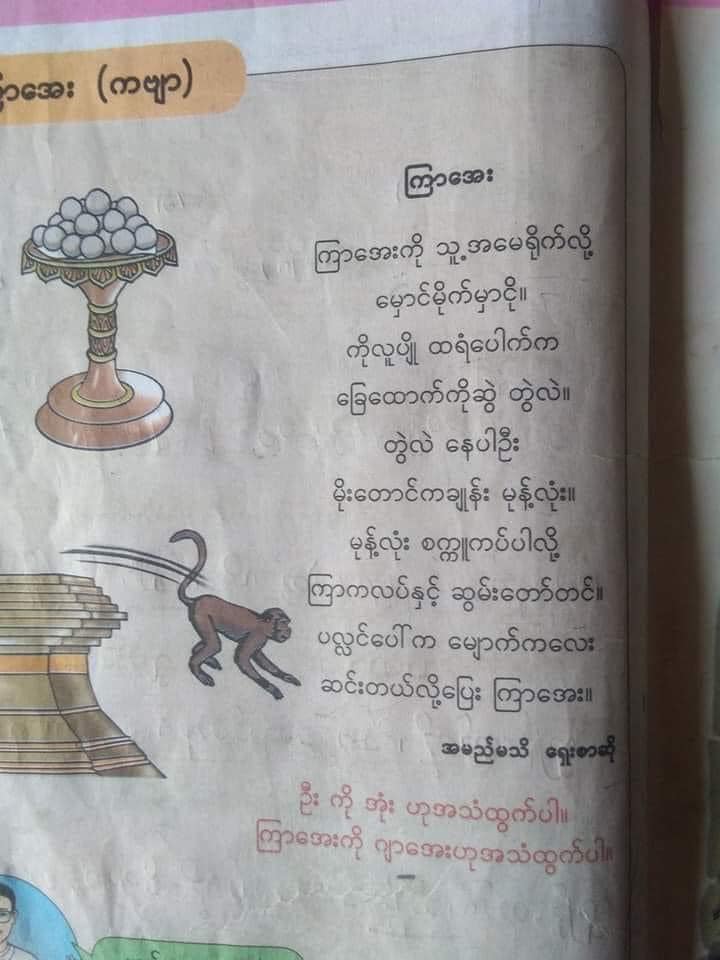 ကြာအေး (ကဗျာ)
ကြာအေး
ကြာအေးကို သူ့အမေရိုက်လို့
မှောင်မိုက်မှာငို။
ကိုလူပျို ထရံပေါက်က
ခြေထောက်ကိုဆွဲ တွဲလဲ။
တွဲလဲ နေပါဦး
မိုးတောင်ကချုန်း မုန့်လုံး။
မုန့်လုံး စက္ကူကပ်ပါလို့
ကြာကလပ်နှင့် ဆွမ်းတော်တင်။
ပလ္လင်ပေါ်က မျောက်ကလေး
ဆင်းတယ်လို့ပြေး ကြာအေး။
အမည်မသိ ရှေးစာဆို
ဦး ကို အုံး ဟုအသံထွက်ပါ။
ကြာအေးကို ဂျာအေးဟုအသံထွက်ပါ။